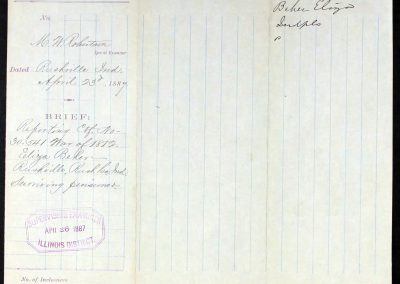 No.
M. W. Robertson
Special Examiner
Dated Rushville Ind.
April 23d, 1887
BRIEF:
Reporting Ctf. No.
30.541 War of 1812.
Eliza Beker
Rushville, Rush Co. Ind.
Surviving pensioner.
SUPERVISING EXAMINER
APR 26 1887
ILLINOIS DISTRICT.
No. of Inclosures
Beker Eliza
Indpls